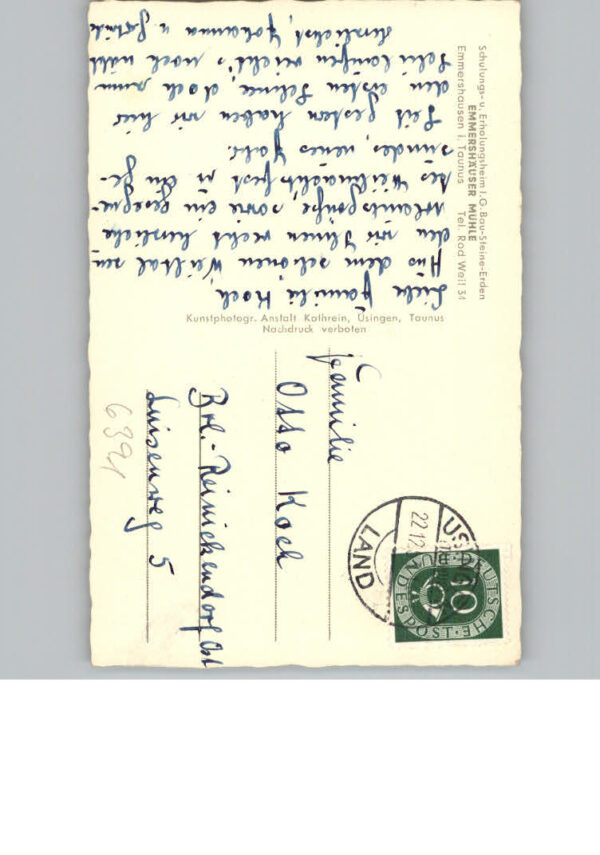 Schulungs- u. Erholungsheim I.G. Bau-Steine-Erden
EMMERSHÄUSER MÜHLE
Emmershausen i. Taunus Tel. Rod Weil 34
Liebe Familie Koch,
Aus dem schönen Weiltal sen-
den wir Ihnen recht herzliche
Urlaubsgrüße, sowie ein gesegne-
tes Weihnachtsfest u. ein ge-
sundes, neues Jahr.
Seit gestern haben wir hier
den ersten Schnee, doch zum
Schi laufen reicht's noch nicht
Herzlichst, Johanna u.
Kunstphotogr. Anstalt Kathrein, Usingen, Taunus
Nachdruck verboten
Familie
Otto Koch
Bln.-Reinickendorf Ost
Luisenweg 5
6391
LAND
22.12.
10
DEUTSCHE BUNDESPOST